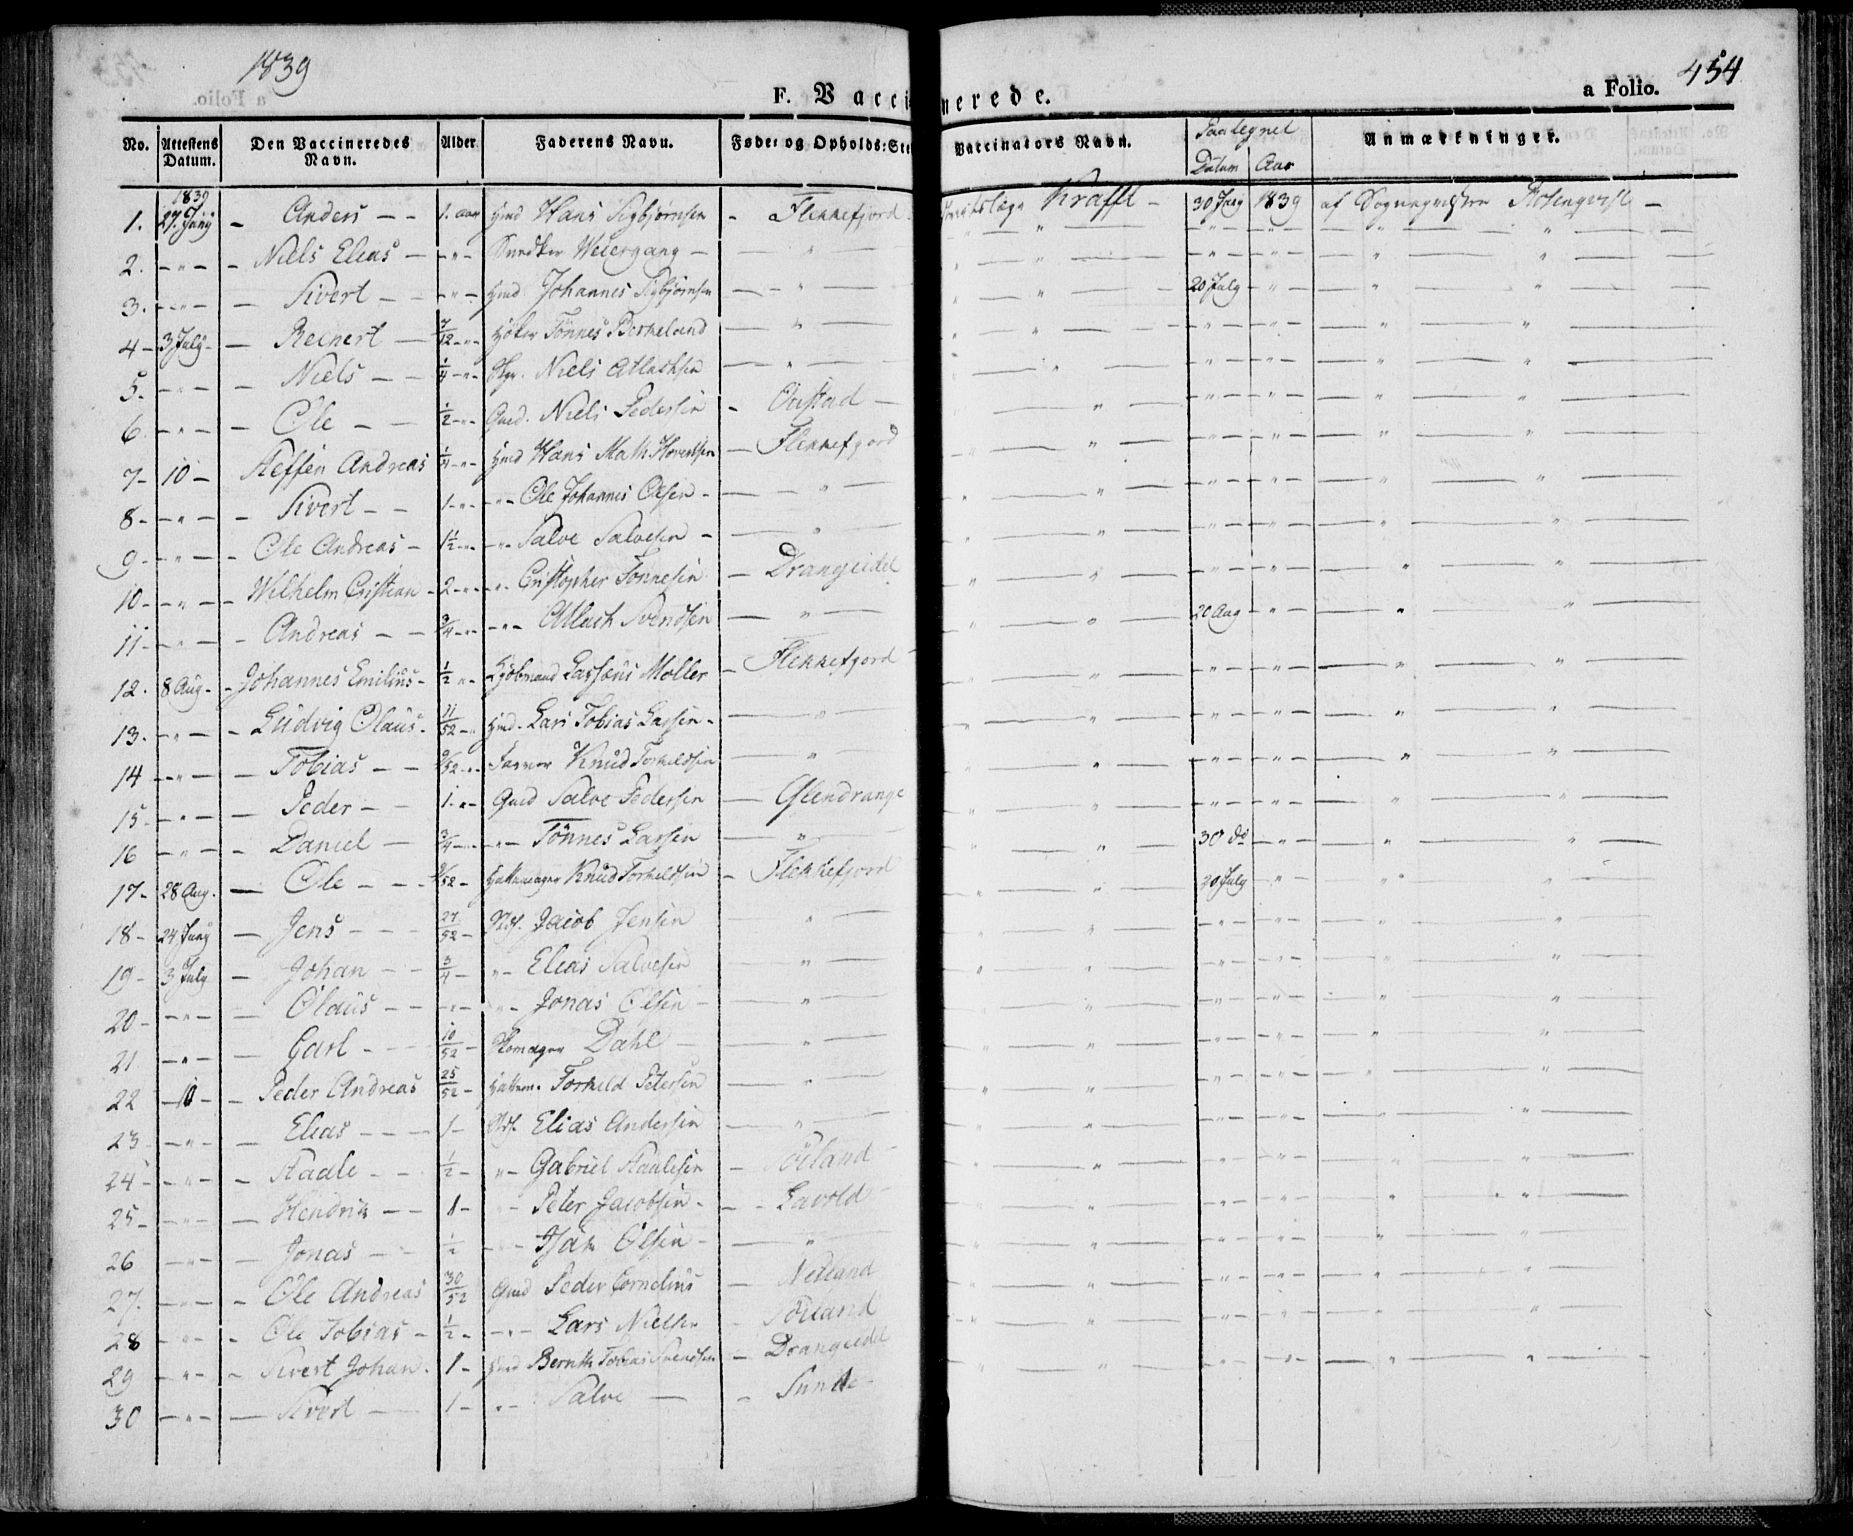 1839
454
F. Vaccinerede.
a Folio.
No. Attestens Datum. Den Vaccineredes Navn. Alder Faderens Navn. Føde- og Opholds-Ste Vaccinators Navn. Paategnet Datum Aar Anmærkninger.
1839
1. 27. Juny - Anders - - 1. aar Hmd Hans Sigbjørnsen - Flekkefjord Krafft - 30 July 1839 af Sognepræsten Rosenqvist -
2. - " - - Niels Elias - - " - Snedker Weiergang - - " - - " - - " - - " - - " - - " -
3. - " - - Sivert - - - " - Hmd Johannes Sigbjørnsen - " - - " - 20 July - " - - " - - " -
4 - 3 July - - Reinert - 7/12 - " - Tønnes Berkeland - " - - " - - " - - " - - " - - " -
5. - " - - Niels - - 1/4 - " - Niels Atlaksen - " - - " - - " - - " - - " - - " -
6. - " - - Ole - - 1/2 - " - Gmd. Niels Pedersen - - " - - " - - " - - " - - " -
7 - 10 - Steffen Andreas 1/4 - " - Hmd Hans Math. - Flekkefjord - " - - " - - " - - " - - " -
8 - - " - - Sivert - - 1 - " - - " - Ole Johannes Olsen - - " - - " - - " - - " - - " - - " -
9 - - " - - Ole Andreas - 1 1/2 - " - - " - Salve Salvesen - - " - - " - - " - - " - - " - - " -
10 - - " - - Wilhelm Cristian - 2 - " - - " - Cristopher Tønnesen - Drangeidel - " - - " - - " - - " - - " -
11 - - " - - Andreas - - 3/4 - " - - " - Atlack Svendsen - " - - " - 20 Aug - " - - " - - " -
12. 8 Aug - - Johannes Emilius - 1/2 - " - Kjøbmand Lassæus Møller - Flekkefjord - - " - - " - - " - - " - - " -
13. - " - - Ludvig Olaus - 11/52 - " - Hmd. Lars Tobias Larsen - - " - - " - - " - - " - - " - - " -
14 - " - - Tobias - - 9/52 - " - Knud Torkeldsen - " - - " - - " - - " - - " - - " -
15 - - " - - Peder - - 1 - " - Gmd Salve Pedersen - Glendrange - " - - " - - " - - " - - " -
16 - " - - Daniel - 3/4 - " - - " - Tønnes Larsen - " - - " - 30 do - " - - " - - " -
17 - 28 Aug. - Ole - - /52 - Hattemager Knud Torkeldsen - Flekkefjord - " - 30 July - " - - " - - " -
18 - 24 Juny - Jens - - 27/52 - Jacob Jensen - " - - " - - " - - " - - " - - " -
19 - 3 July - Johan - - 3/4 - - " - Elias Salvesen - " - - " - - " - - " - - " - - " -
20 - - " - - Olaus - - - " - - " - Jonas Olsen - - " - - " - - " - - " - - " - - " -
21 - " - - Carl - - 10/52 - Skomager Dahl - - " - - " - - " - - " - - " - - " -
22 - 10 - - Peder Andreas 25/52 - Hattem. Torkeld Petersen - " - - " - - " - - " - - " - - " -
23 - - " - - Elias - - 1 - Elias Andersen - " - - " - - " - - " - - " - - " -
24 - - " - - Staale - - 1/2 - - " - Gabriel Staalesen - - " - - " - - " - - " - - " -
25 - - " - - Hendrik - - 1 - - " - Peter Jacobsen - - Lavold - - " - - " - - " - - " - - " -
26 - " - - Jonas - - 1/2 - " - Isak Olsen - - " - - " - - " - - " - - " - - " -
27. - " - - Ole Andreas 30/52 Gmd Peder Cornelius - Netland - " - - " - - " - - " - - " -
28 - " - - Ole Tobias - 1/2 - - " - Lars Nielsen - - " - - " - - " - - " - - " -
29 - " - - Sivert Johan - 1 - Hmd Bernth Tobias Svendsen - Drangeidel - " - - " - - " - - " - - " -
30 - " - - Sivert - 1 - - " - Salve - - Sunde -